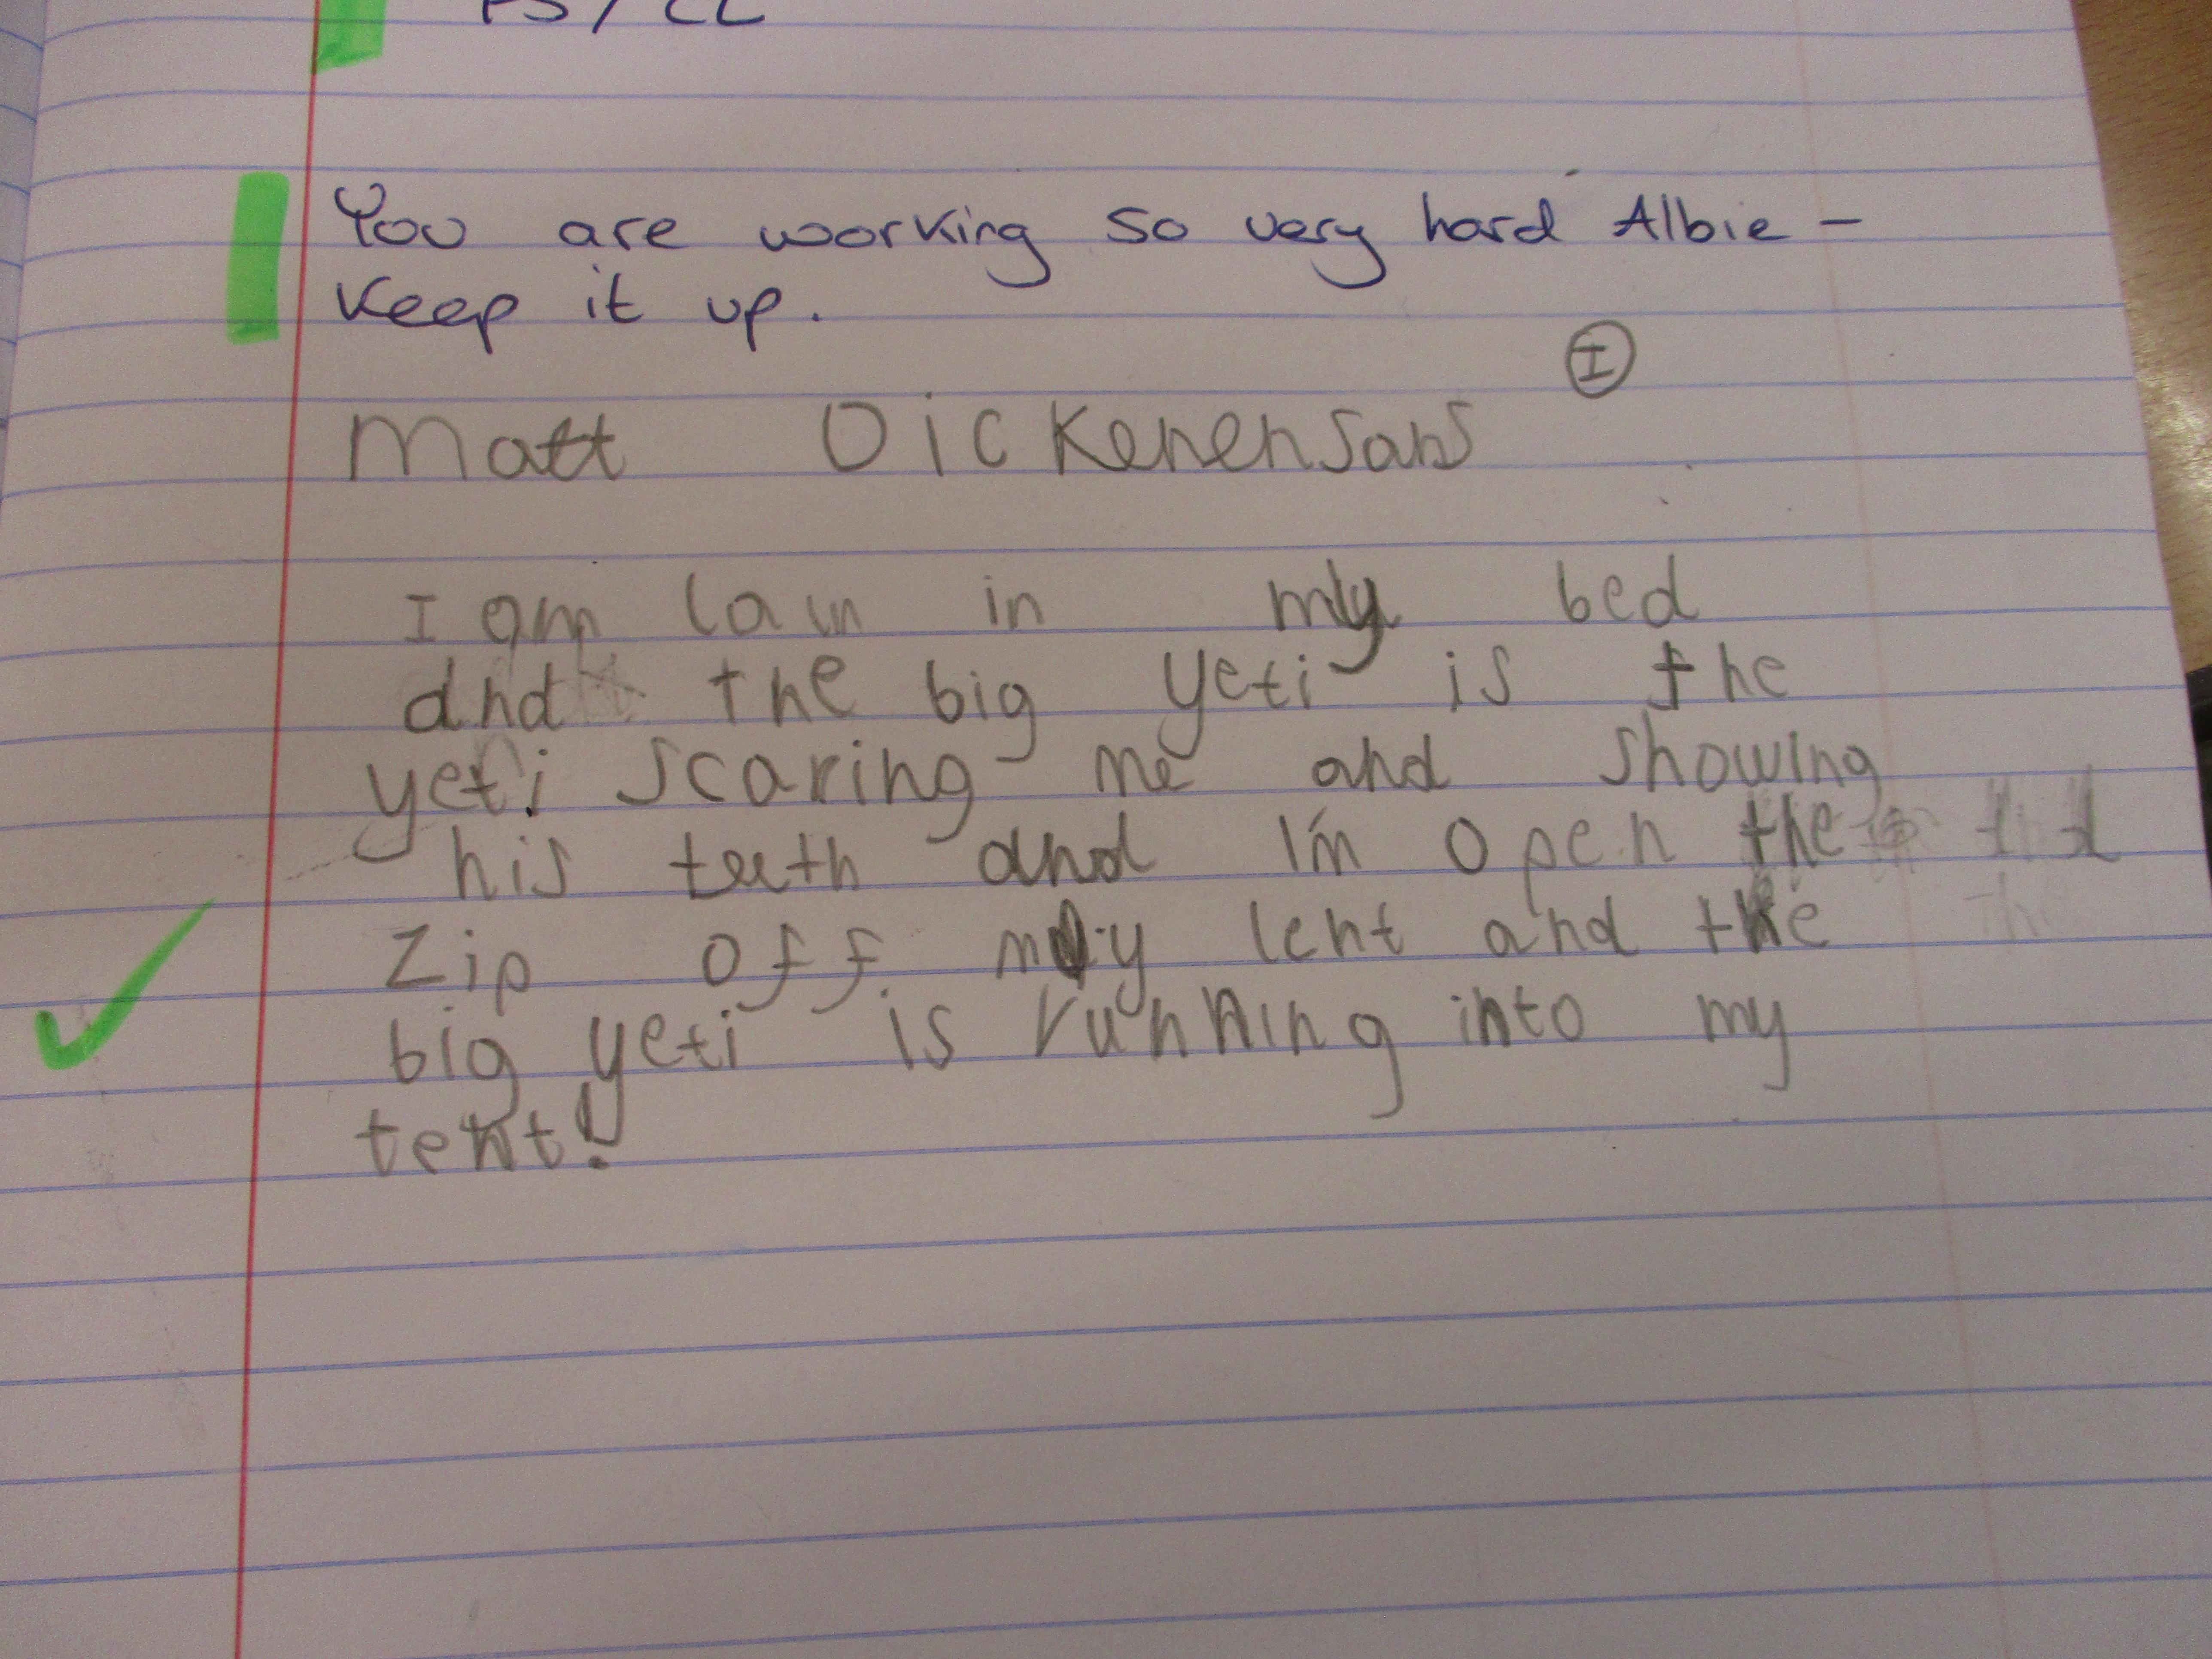 FS/CL
You are working so very hard Albie -
Keep it up.
I
Matt Dickenensons
I am lain in my bed
and the big yeti is the
yeti scaring me and showing
his teeth and I'm open the
zip off my tent and the
big yeti is running into my
tent!